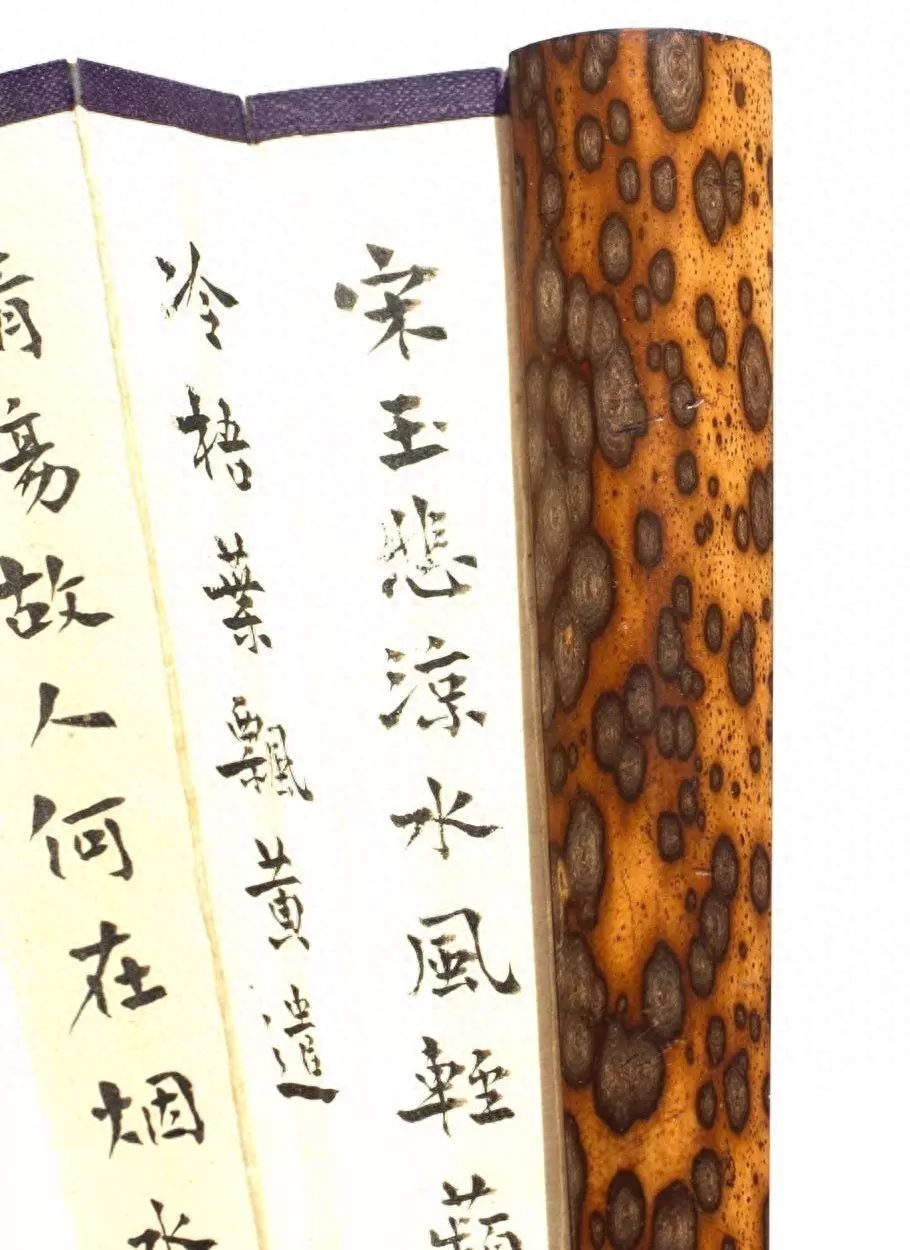 宋玉悲涼水風輕蘋
冷梧葉飄黄遣
情傷故人何在烟水